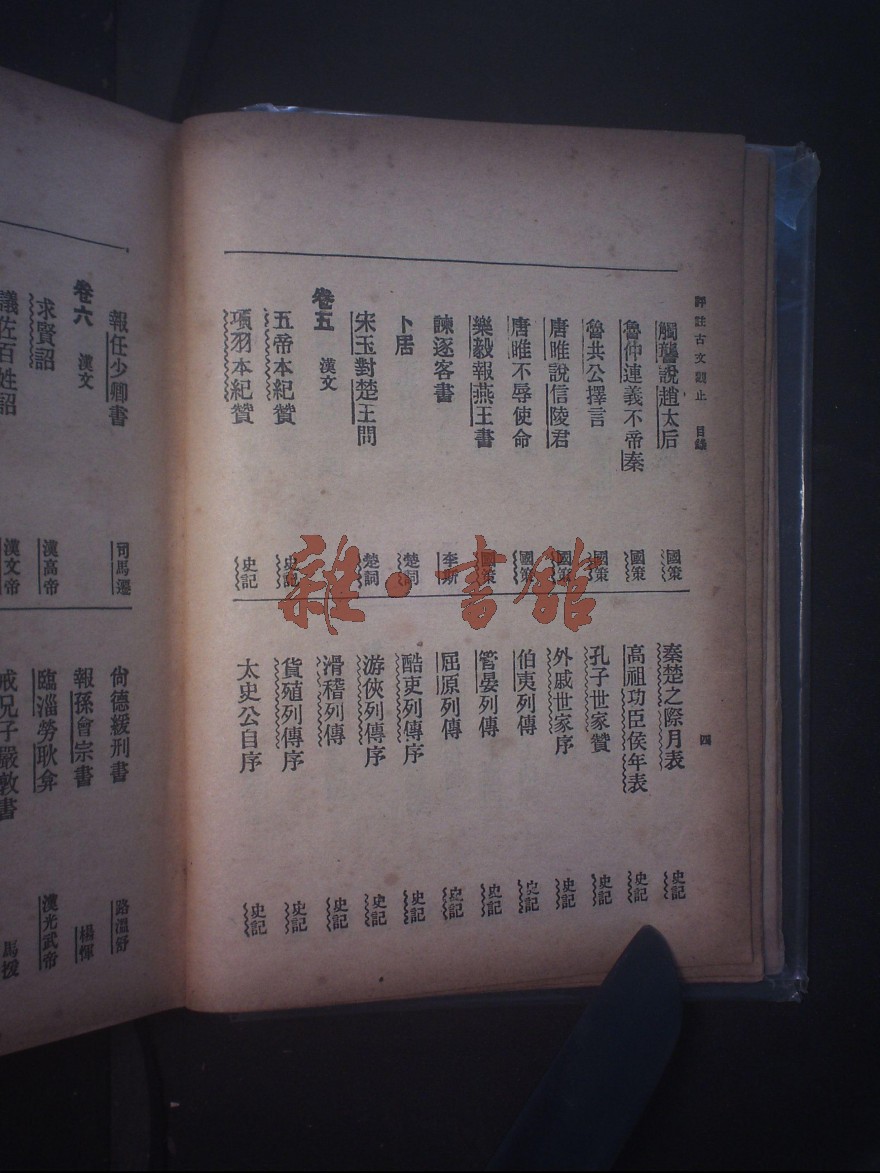 評註古文觀止 目錄
四
觸讋說趙太后 國策
魯仲連義不帝秦 國策
魯共公擇言 國策
唐雎說信陵君 國策
唐雎不辱使命 國策
樂毅報燕王書 國策
諫逐客書 李斯
卜居 楚詞
宋玉對楚王問 楚詞
卷五 漢文
五帝本紀贊 史記
項羽本紀贊 史記
秦楚之際月表 史記
高祖功臣侯年表 史記
孔子世家贊 史記
外戚世家序 史記
伯夷列傳 史記
管晏列傳 史記
屈原列傳 史記
酷吏列傳序 史記
游俠列傳序 史記
滑稽列傳 史記
貨殖列傳序 史記
太史公自序 史記
報任少卿書 司馬遷
卷六 漢文
求賢詔 漢高帝
議佐百姓詔 漢文帝
尙德緩刑書 路溫舒
報孫會宗書 楊惲
臨淄勞耿弇 漢光武帝
戒兄子嚴敦書 馬援
雜·書館